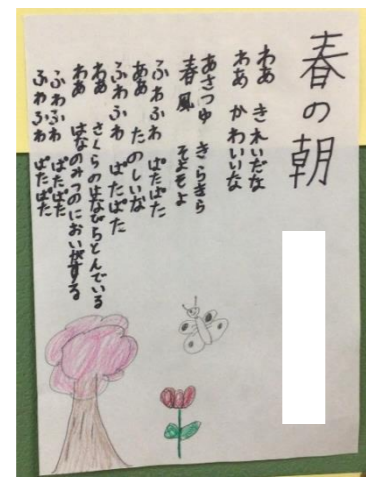 春の朝
わあ きれいだな
わあ かわいいな
あさつゆ きらきら
春風 そよそよ
ふわふわ ぱたぱた
ああ たのしいな
ふわふわ ぱたぱた
わあ さくらのはなびらとんでいる
わあ はなのみつのにおいがする
ふわふわ ぱたぱた
ふわふわ ぱたぱた